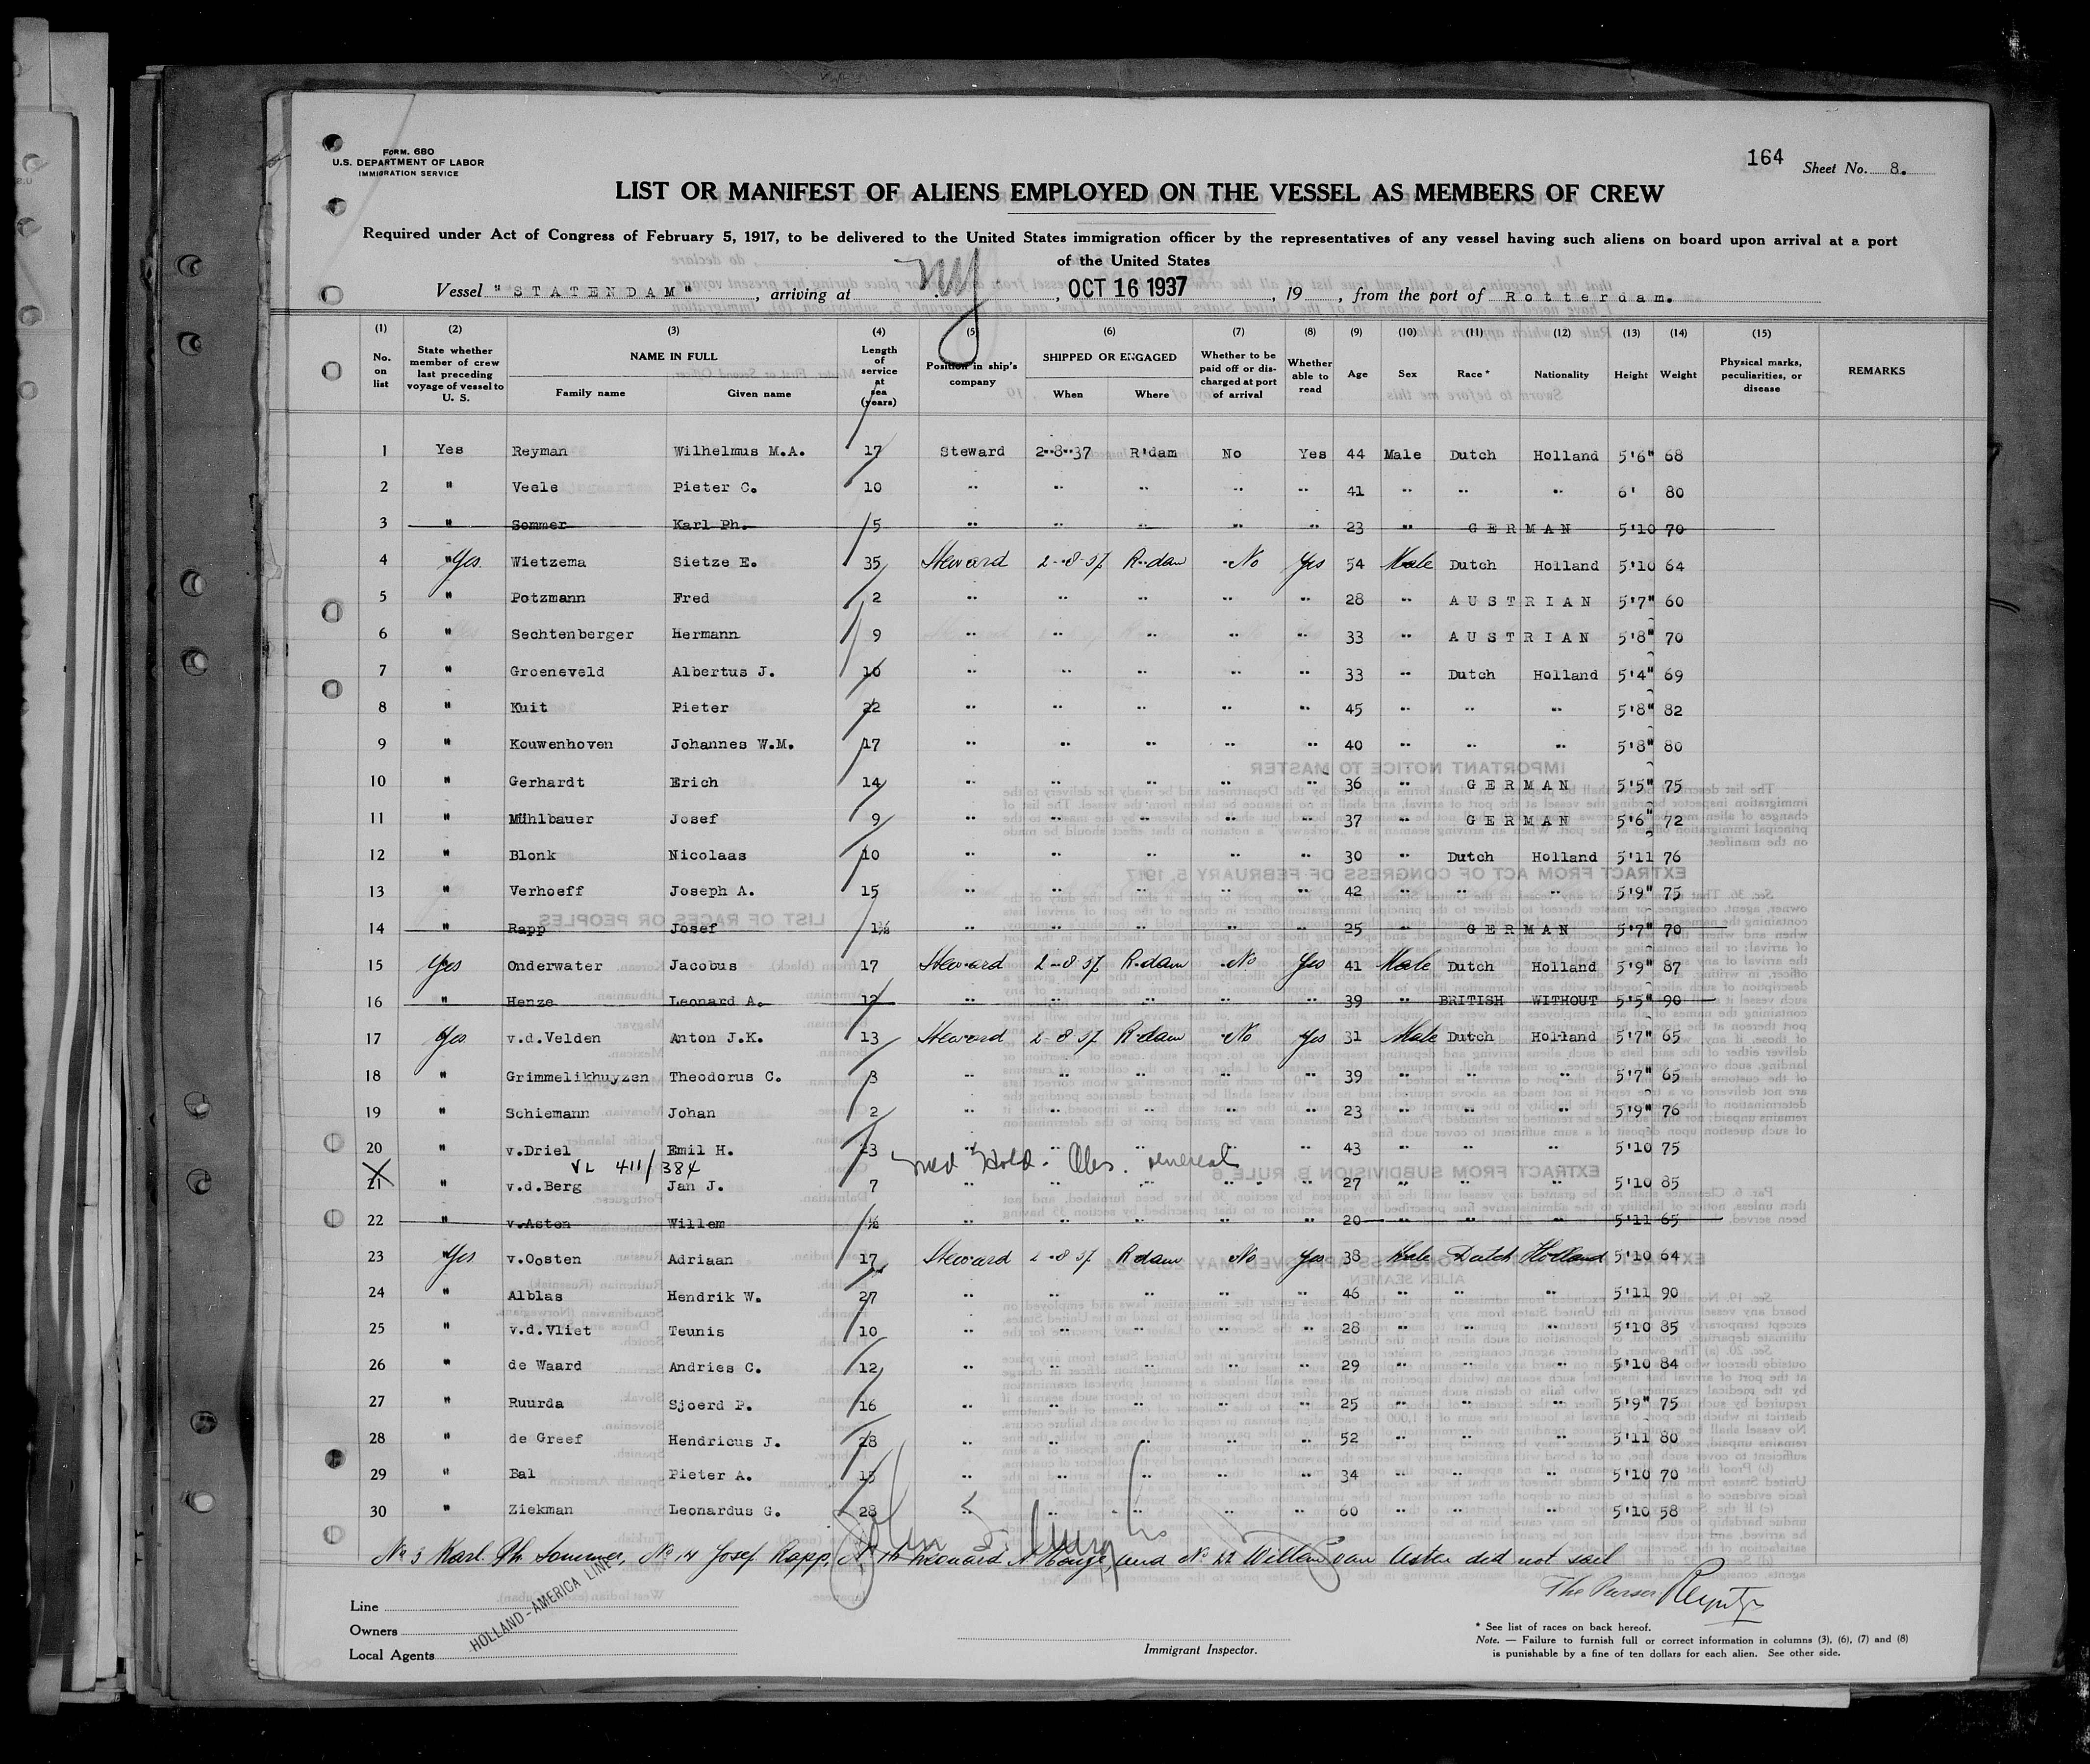 FORM. 680
U.S. DEPARTMENT OF LABOR
IMMIGRATION SERVICE
164 Sheet No. 8.
LIST OR MANIFEST OF ALIENS EMPLOYED ON THE VESSEL AS MEMBERS OF CREW
Required under Act of Congress of February 5, 1917, to be delivered to the United States immigration officer by the representatives of any vessel having such aliens on board upon arrival at a port
of the United States
Vessel "STATENDAM", arriving at NY, OCT 16 1937, 19, from the port of Rotterdam.
(1) (2) (3) (4) (5) (6) (7) (8) (9) (10) (11) (12) (13) (14) (15)
No. on list State whether member of crew last preceding voyage of vessel to U. S. NAME IN FULL Family name Given name Length of service at sea (years) Position in ship's company SHIPPED OR ENGAGED When Where Whether to be paid off or discharged at port of arrival Whether able to read Age Sex Race * Nationality Height Weight Physical marks, peculiarities, or disease REMARKS
1 Yes Reyman Wilhelmus M.A. 17 Steward 2-8-37 R'dam No Yes 44 Male Dutch Holland 5'6" 68
2 " Veele Pieter C. 10 " " " " " 41 " " " 6' 80
3 " Sommer Karl Ph. 5 " " " " " 23 " GERMAN 5'10 70
4 " Yes Wietzema Sietze E. 35 Steward 2-8-37 R-dam No Yes 54 Male Dutch Holland 5'10 64
5 " Potzmann Fred 2 " " " " " 28 " AUSTRIAN 5'7" 60
6 " Sechtenberger Hermann 9 " " " " " 33 " AUSTRIAN 5'8" 70
7 " Groeneveld Albertus J. 10 " " " " " 33 " Dutch Holland 5'4" 69
8 " Kuit Pieter 22 " " " " " 45 " " " 5'8" 82
9 " Kouwenhoven Johannes W.M. 17 " " " " " 40 " " " 5'8" 80
10 " Gerhardt Erich 14 " " " " " 36 " GERMAN 5'5" 75
11 " Mühlbauer Josef 9 " " " " " 37 " GERMAN 5'6" 72
12 " Blonk Nicolaas 10 " " " " " 30 " Dutch Holland 5'11 76
13 " Verhoeff Joseph A. 15 " " " " " 42 " " " 5'9" 75
14 " Rapp Josef 1½ " " " " " 25 " GERMAN 5'7" 70
15 Yes Onderwater Jacobus 17 Steward 2-8-37 R-dam No Yes 41 Male Dutch Holland 5'9" 87
16 " Henze Leonard A. 12 " " " " " 39 " BRITISH WITHOUT 5'5" 90
17 Yes v.d.Velden Anton J.K. 13 Steward 2-8-37 R-dam No Yes 31 Male Dutch Holland 5'7" 65
18 " Grimmelikhuyzen Theodorus C. 3 " " " " " 39 " " " 5'7" 65
19 " Schiemann Johan 2 " " " " " 23 " " " 5'9" 76
20 " v.Driel Emil H. 23 " " " " " 43 " " " 5'10 75
VL 411/384 Med Hold. Obs. venereal
21 " v.d.Berg Jan J. 7 " " " " " 27 " " " 5'10 85
22 " v.Asten Willem ½ " " " " " 20 " " " 5'11 65
23 " Yes v.Oosten Adriaan 17 Steward 2-8-37 R-dam No Yes 38 Male Dutch Holland 5'10 64
24 " Alblas Hendrik W. 27 " " " " " 46 " " " 5'11 90
25 " v.d.Vliet Teunis 10 " " " " " 28 " " " 5'10 85
26 " de Waard Andries C. 12 " " " " " 29 " " " 5'10 84
27 " Ruurda Sjoerd P. 16 " " " " " 25 " " " 5'9" 75
28 " de Greef Hendricus J. 28 " " " " " 52 " " " 5'11 80
29 " Bal Pieter A. 15 " " " " " 34 " " " 5'10 70
30 " Ziekman Leonardus G. 28 " " " " " 60 " " " 5'10 58
No 3 Karl. Ph. Sommer, No 14 Josef Rapp, No 16 Leonard A Henze, and No 22 Willem van Asten did not sail
The Purser
Line
Owners
Local Agents
HOLLAND-AMERICA LINE
Immigrant Inspector.
* See list of races on back hereof.
Note. — Failure to furnish full or correct information in columns (3), (6), (7) and (8)
is punishable by a fine of ten dollars for each alien. See other side.